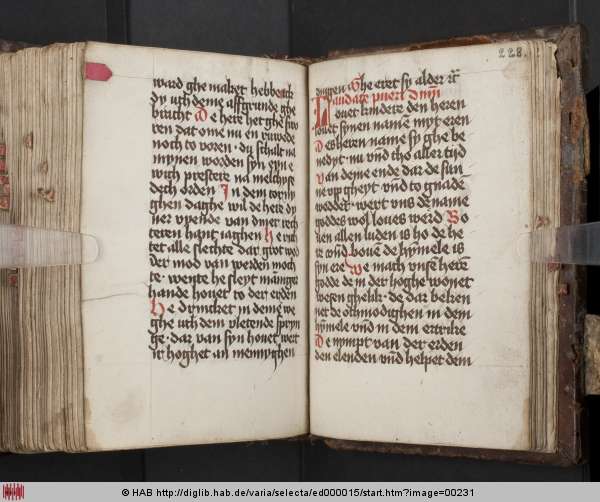 ward ghe maket hebbende
dy uth deme affgrunde ghe
bracht De here het ghe swo
ren dat ome nu en ruwede
noch to voren · du schalt na
mynen worden syn eyn e
wich prestere na melchyse
dech orden In dem torny
ghen daghe wil de here dy
ner vyende van dyner rech
teren hant iaghen He rich
tet alle slechte dar grot wed
der mod van werden moch
te · wente he sleyt mannger
hande hovet to der erden
He drincket in deme we
ghe uth dem vletende spryn
ge · dar van syn hovet wert
vorhoghet an mennyghen
228.
dingen Ghe eret sy alder
Laudate pueri dnm
Lovet kindere den heren
lovet synen name myt eren
Des heren name sy ghe be
nedyt · nu vnd tho aller tijd
van deme ende dar de sun
ne vp gheyt vnd to gnade
wedder · wert vns de name
goddes wol loves werd Bo
ven allen luden is ho de he
re vnd bove de hymele is
syn ere We mach vnse here
godde de in der hoghe wonet
wesen ghelik · de dar beken
net de otmodighen in dem
hymele vnd in dem ertrike
De nympt van der erden
den elenden vnd helpet dem
© HAB http://diglib.hab.de/varia/selecta/ed000015/start.htm?image=00231